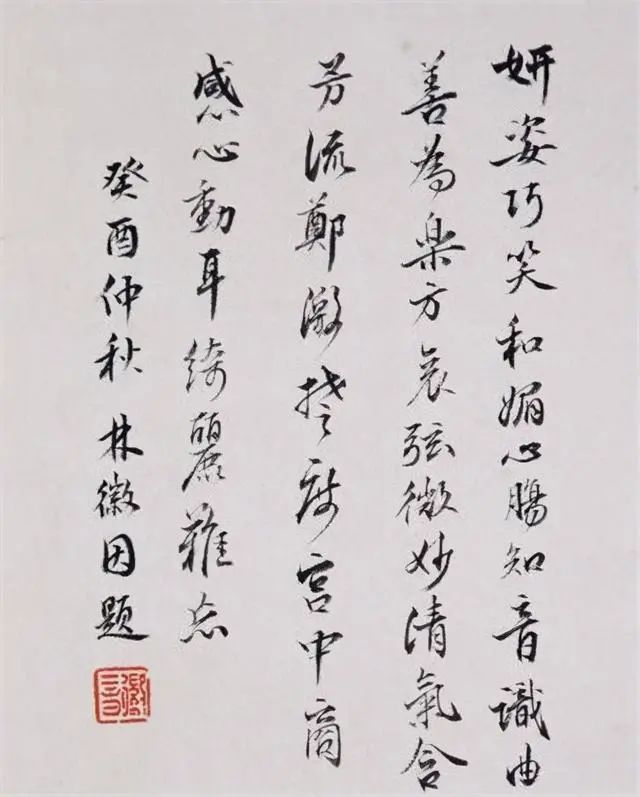 妍姿巧笑和媚心腸知音識曲
善為楽方哀弦微妙清氣含
芳流鄭激楚度宮中商
感心動耳綺麗難忘
癸酉仲秋 林徽因題